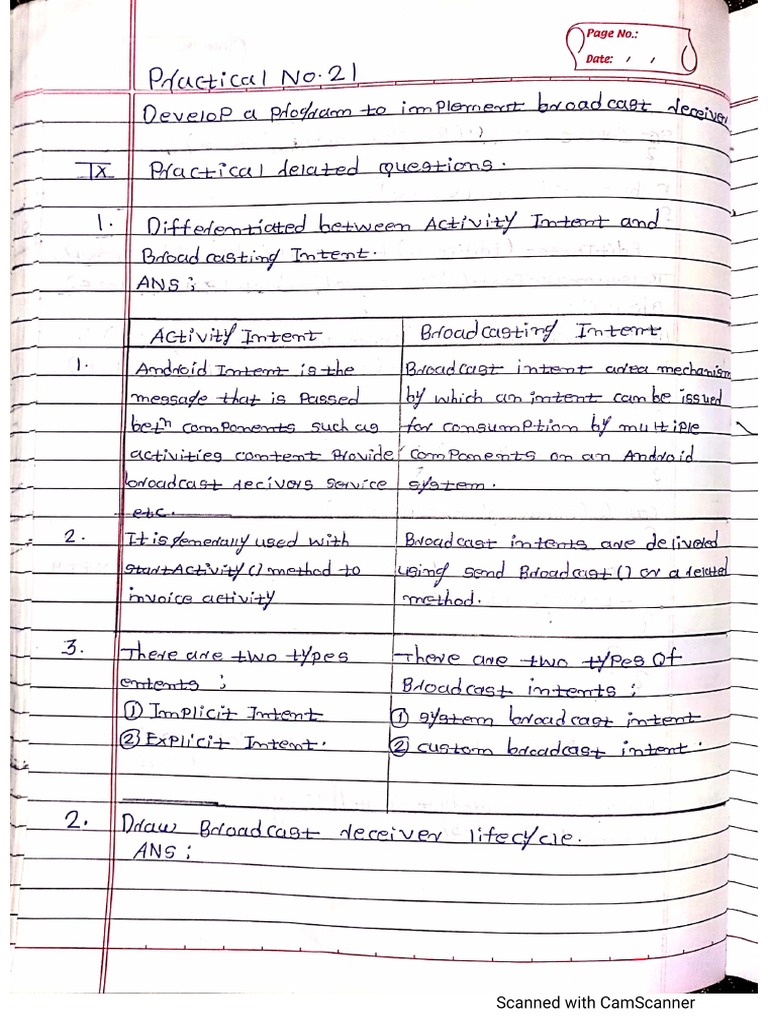 Page No.:
Date: / /
Practical No. 21
Develop a program to implement broadcast receiver
IX Practical related questions.
1. Differentiated between Activity Intent and
Broadcasting Intent.
ANS :
Activity Intent
Broadcasting Intent
1. Android Intent is the
message that is passed
betn components such as
activities content provide
broadcast recivers service
etc.
Broadcast intent area mechanism
by which an intent can be issued
for consumption by multiple
components on an Android
system.
2. It is generally used with
startActivity() method to
invoice activity
Broadcast intents are delivered
using send Broadcast() or a related
method.
3. There are two types
entents :
① Implicit Intent
② Explicit Intent.
There are two types of
Broadcast intents :
① system broadcast intent
② custom broadcast intent.
2. Draw Broadcast receiver lifecycle.
ANS :
Scanned with CamScanner